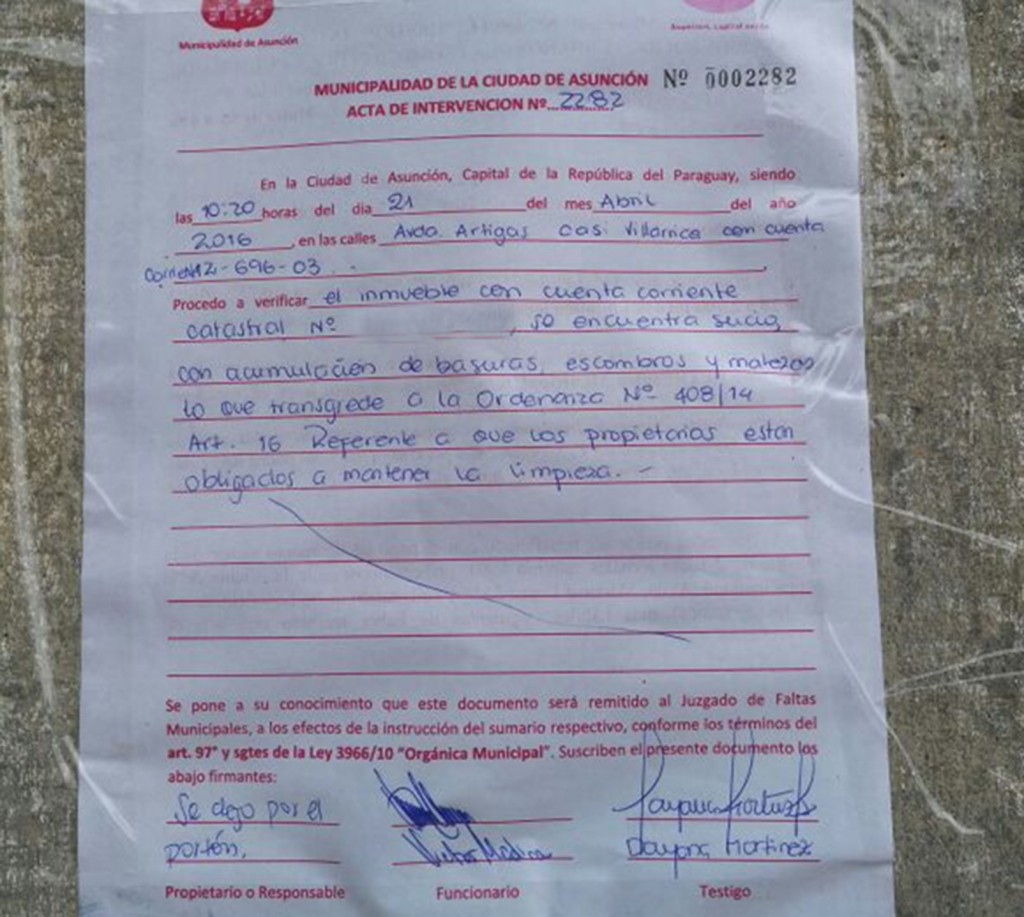 Municipalidad de Asunción
MUNICIPALIDAD DE LA CIUDAD DE ASUNCIÓN Nº 0002282
ACTA DE INTERVENCION Nº...2282
En la Ciudad de Asunción, Capital de la República del Paraguay, siendo
las 10:20 horas del día 21 del mes Abril del año
2016, en las calles Avda. Artigas casi Villarrica con cuenta
696-03
Procedo a verificar el inmueble con cuenta corriente
catastral Nº , se encuentra sucio,
con acumulación de basuras, escombros y malezas
lo que transgrede a la Ordenanza Nº 408/14
Art. 16 Referente a que los propietarios estan
obligados a mantener la limpieza. -
Se pone a su conocimiento que este documento será remitido al Juzgado de Faltas
Municipales, a los efectos de la instrucción del sumario respectivo, conforme los términos del
art. 97° y sgtes de la Ley 3966/10 "Orgánica Municipal". Suscriben el presente documento los
abajo firmantes:
Se dejo por el
portón, Victor Medina Dayana Martinez
Propietario o Responsable Funcionario Testigo